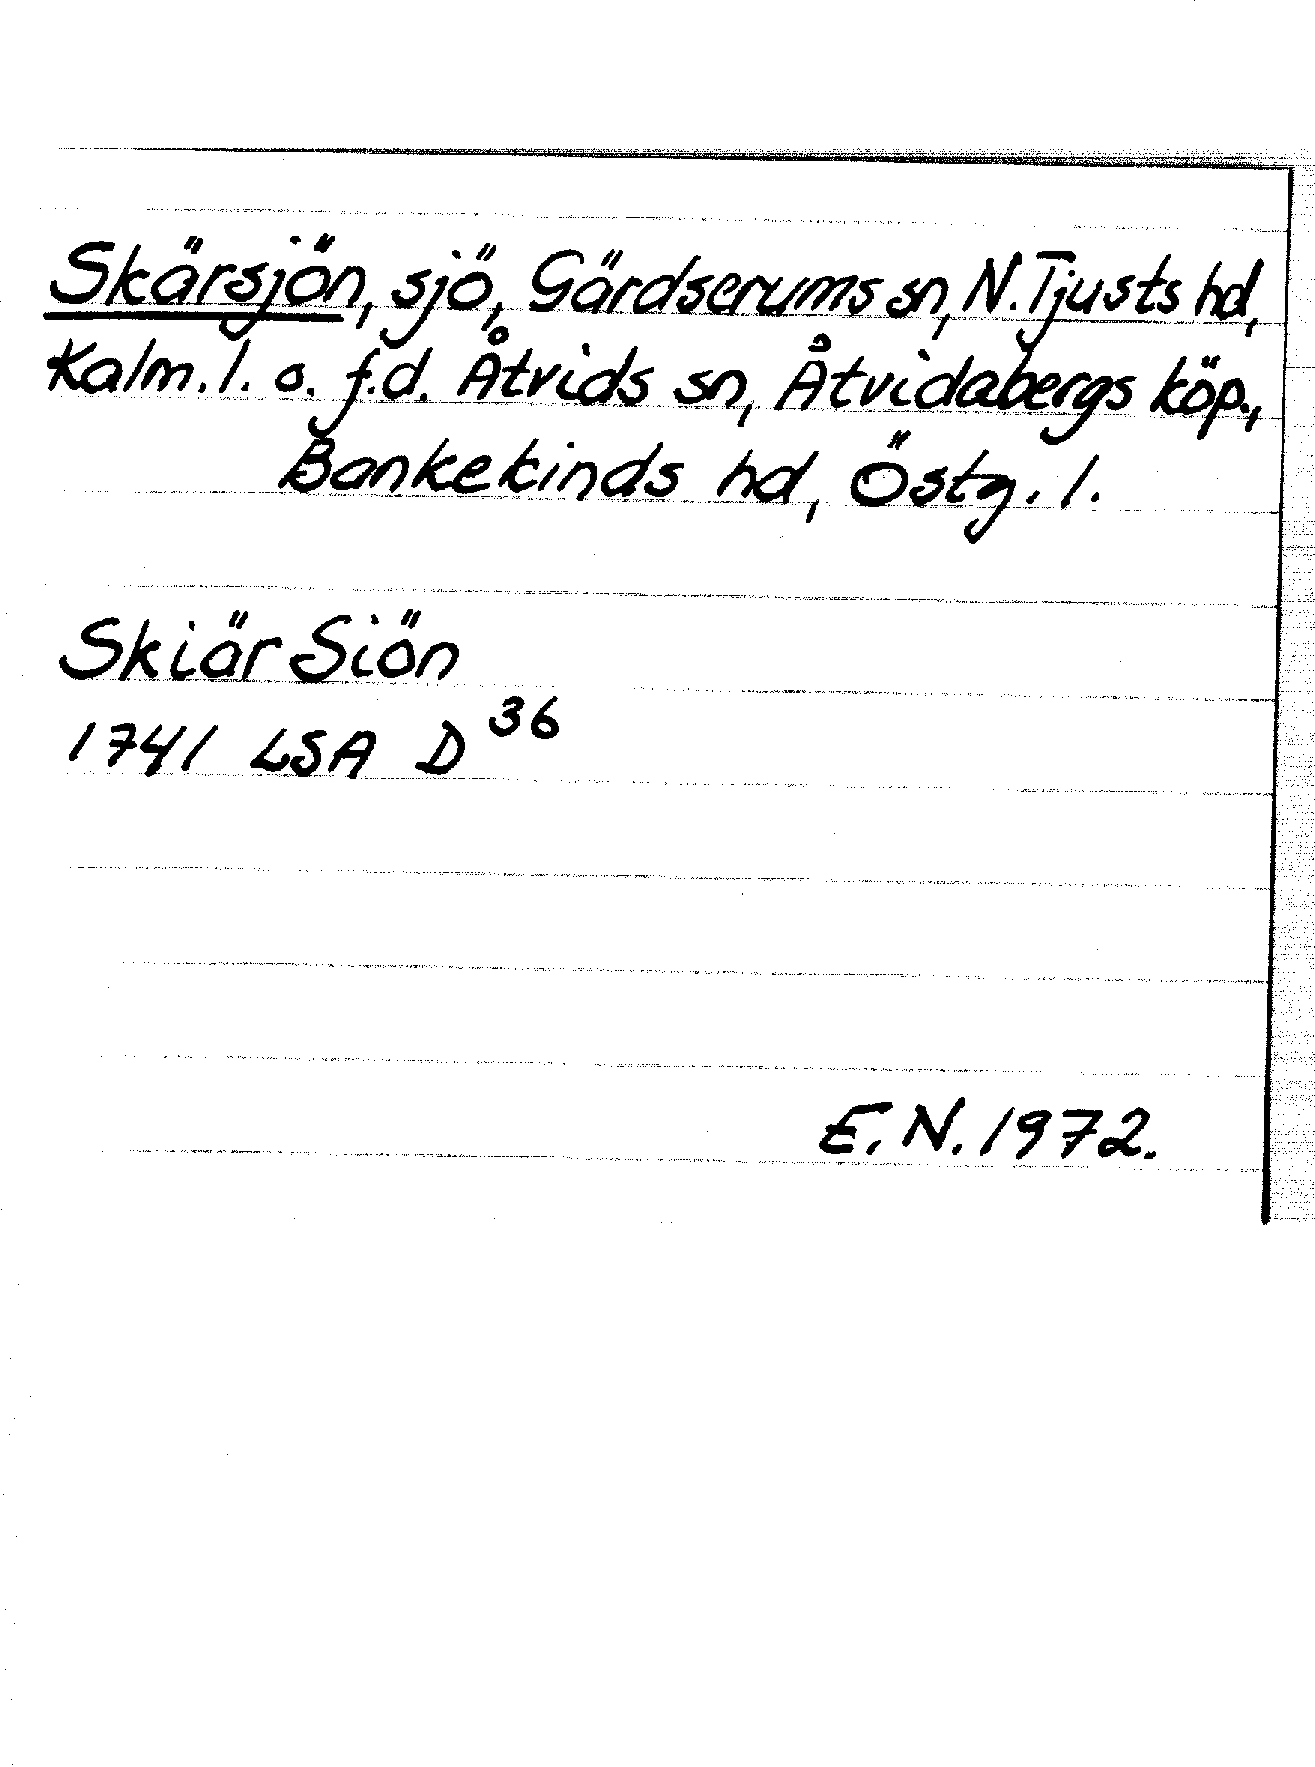 Skärsjön, sjö, Gärdserums sn, N. Tjusts hd,
Kalm. l. o. f.d. Åtvids sn, Åtvidabergs köp.,
Bankekinds hd, Östg. l.
Skiär Siön
1741 LSA D 36
E. N. 1972.